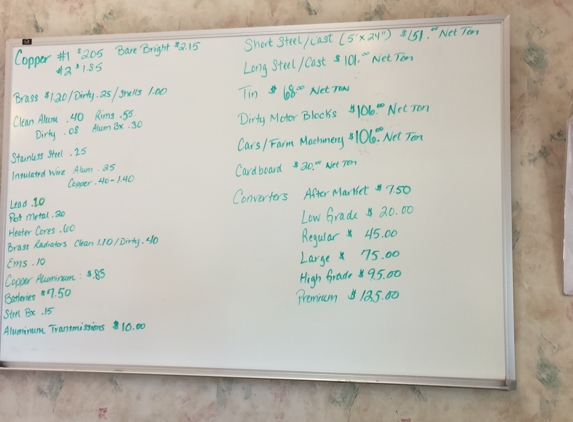 Copper #1 $2.05 Bare Bright $2.15
#2 $1.85
Brass $1.20/Dirty .25/Shells 1.00
Clean Alum .40 Rims .55
Dirty .08 Alum Bx .30
Stainless Steel .25
Insulated Wire Alum .25
Copper .40-1.40
Lead .10
Pot Metal .20
Heater Cores .60
Brass Radiators Clean 1.10/Dirty .40
Ems .10
Copper Aluminum : $.85
Batteries $7.50
Steel Bx .15
Aluminum Transmissions $10.00
Short Steel/Cast (5'x24") $151.00 Net Ton
Long Steel/Cast $101.00 Net Ton
Tin $68.00 Net Ton
Dirty Motor Blocks $106.00 Net Ton
Cars/Farm Machinery $106.00 Net Ton
Cardboard $20.00 Net Ton
Converters After Market $7.50
Low Grade $20.00
Regular $45.00
Large $75.00
High Grade $95.00
Premium $125.00